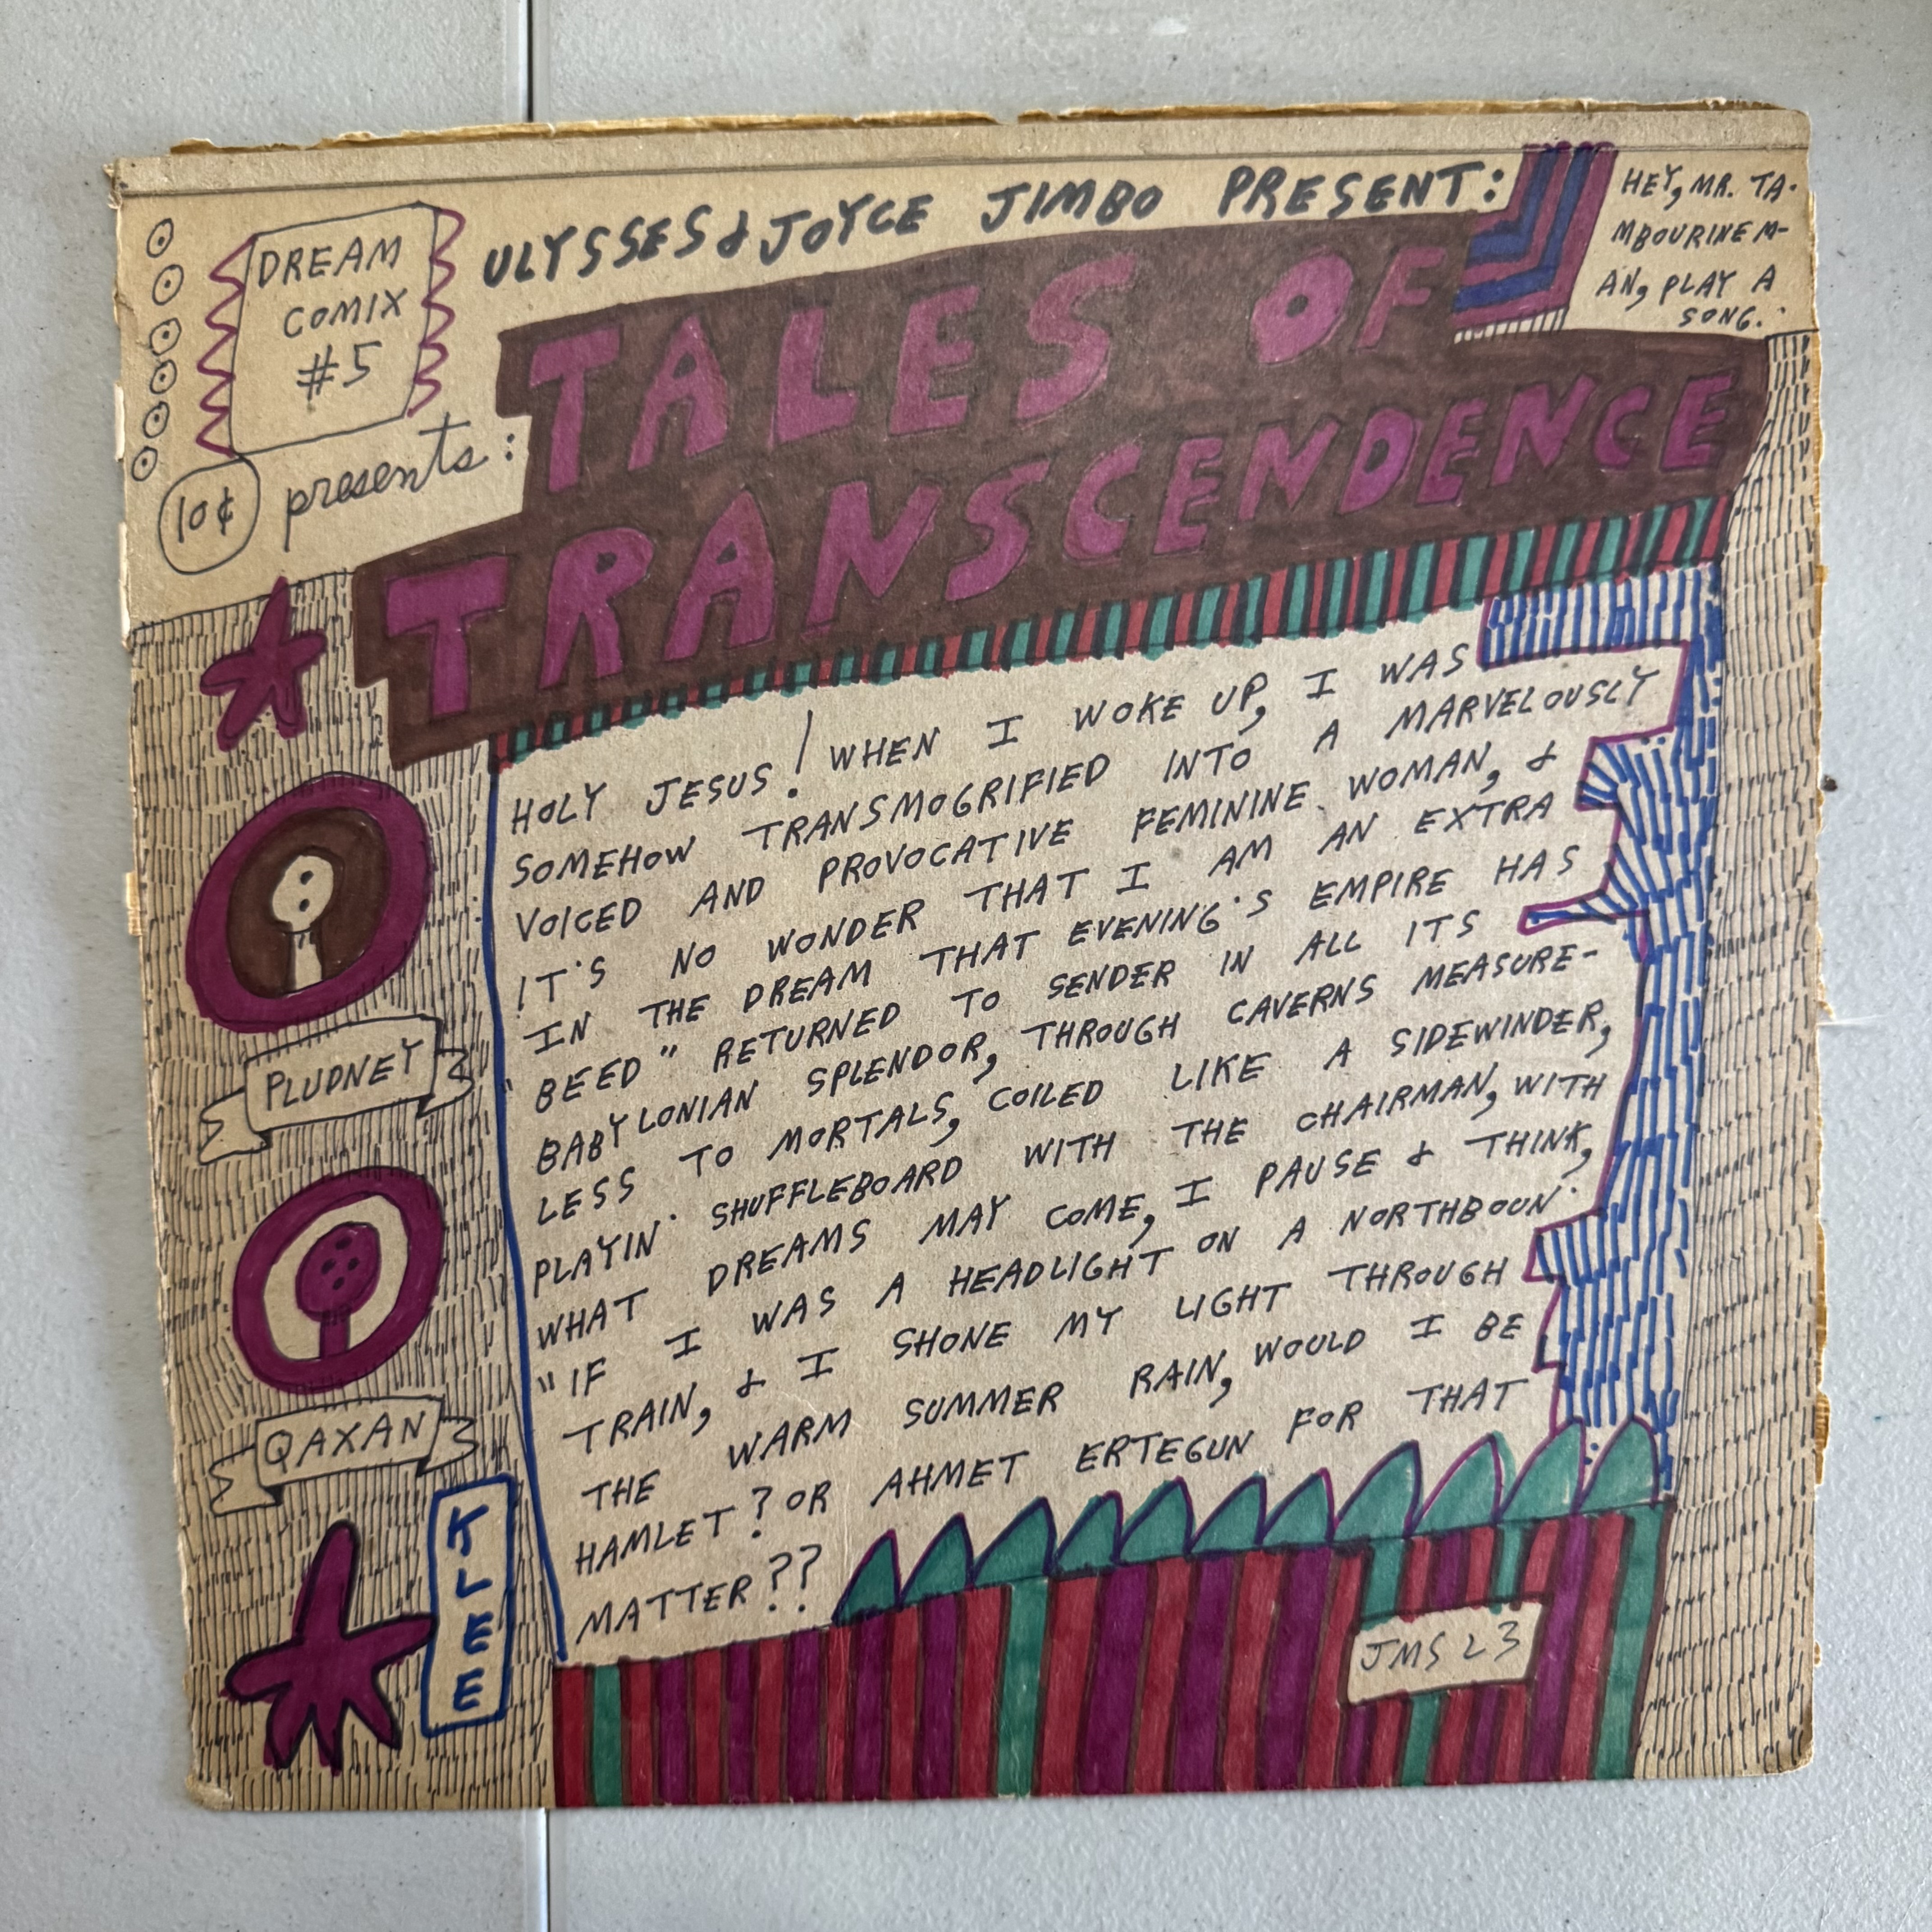 ULYSSES & JOYCE JIMBO PRESENT:
HEY, MR. TA-
MBOURINE M-
AN, PLAY A
SONG.
DREAM
COMIX
#5
10¢
presents:
TALES OF
TRANSCENDENCE
HOLY JESUS! WHEN I WOKE UP, I WAS
SOMEHOW TRANSMOGRIFIED INTO A MARVELOUSLY
VOICED AND PROVOCATIVE FEMININE WOMAN, &
IT'S NO WONDER THAT I AM AN EXTRA
IN THE DREAM THAT EVENING'S EMPIRE HAS
"BEED" RETURNED TO SENDER IN ALL ITS
BABYLONIAN SPLENDOR, THROUGH CAVERNS MEASURE-
LESS TO MORTALS, COILED LIKE A SIDEWINDER,
PLAYIN' SHUFFLEBOARD WITH THE CHAIRMAN, WITH
WHAT DREAMS MAY COME, I PAUSE & THINK,
"IF I WAS A HEADLIGHT ON A NORTHBOUN'
TRAIN, & I SHONE MY LIGHT THROUGH
THE WARM SUMMER RAIN, WOULD I BE
HAMLET? OR AHMET ERTEGUN FOR THAT
MATTER??
PLUDNEY
QAXAN
KLEE
JMS 23